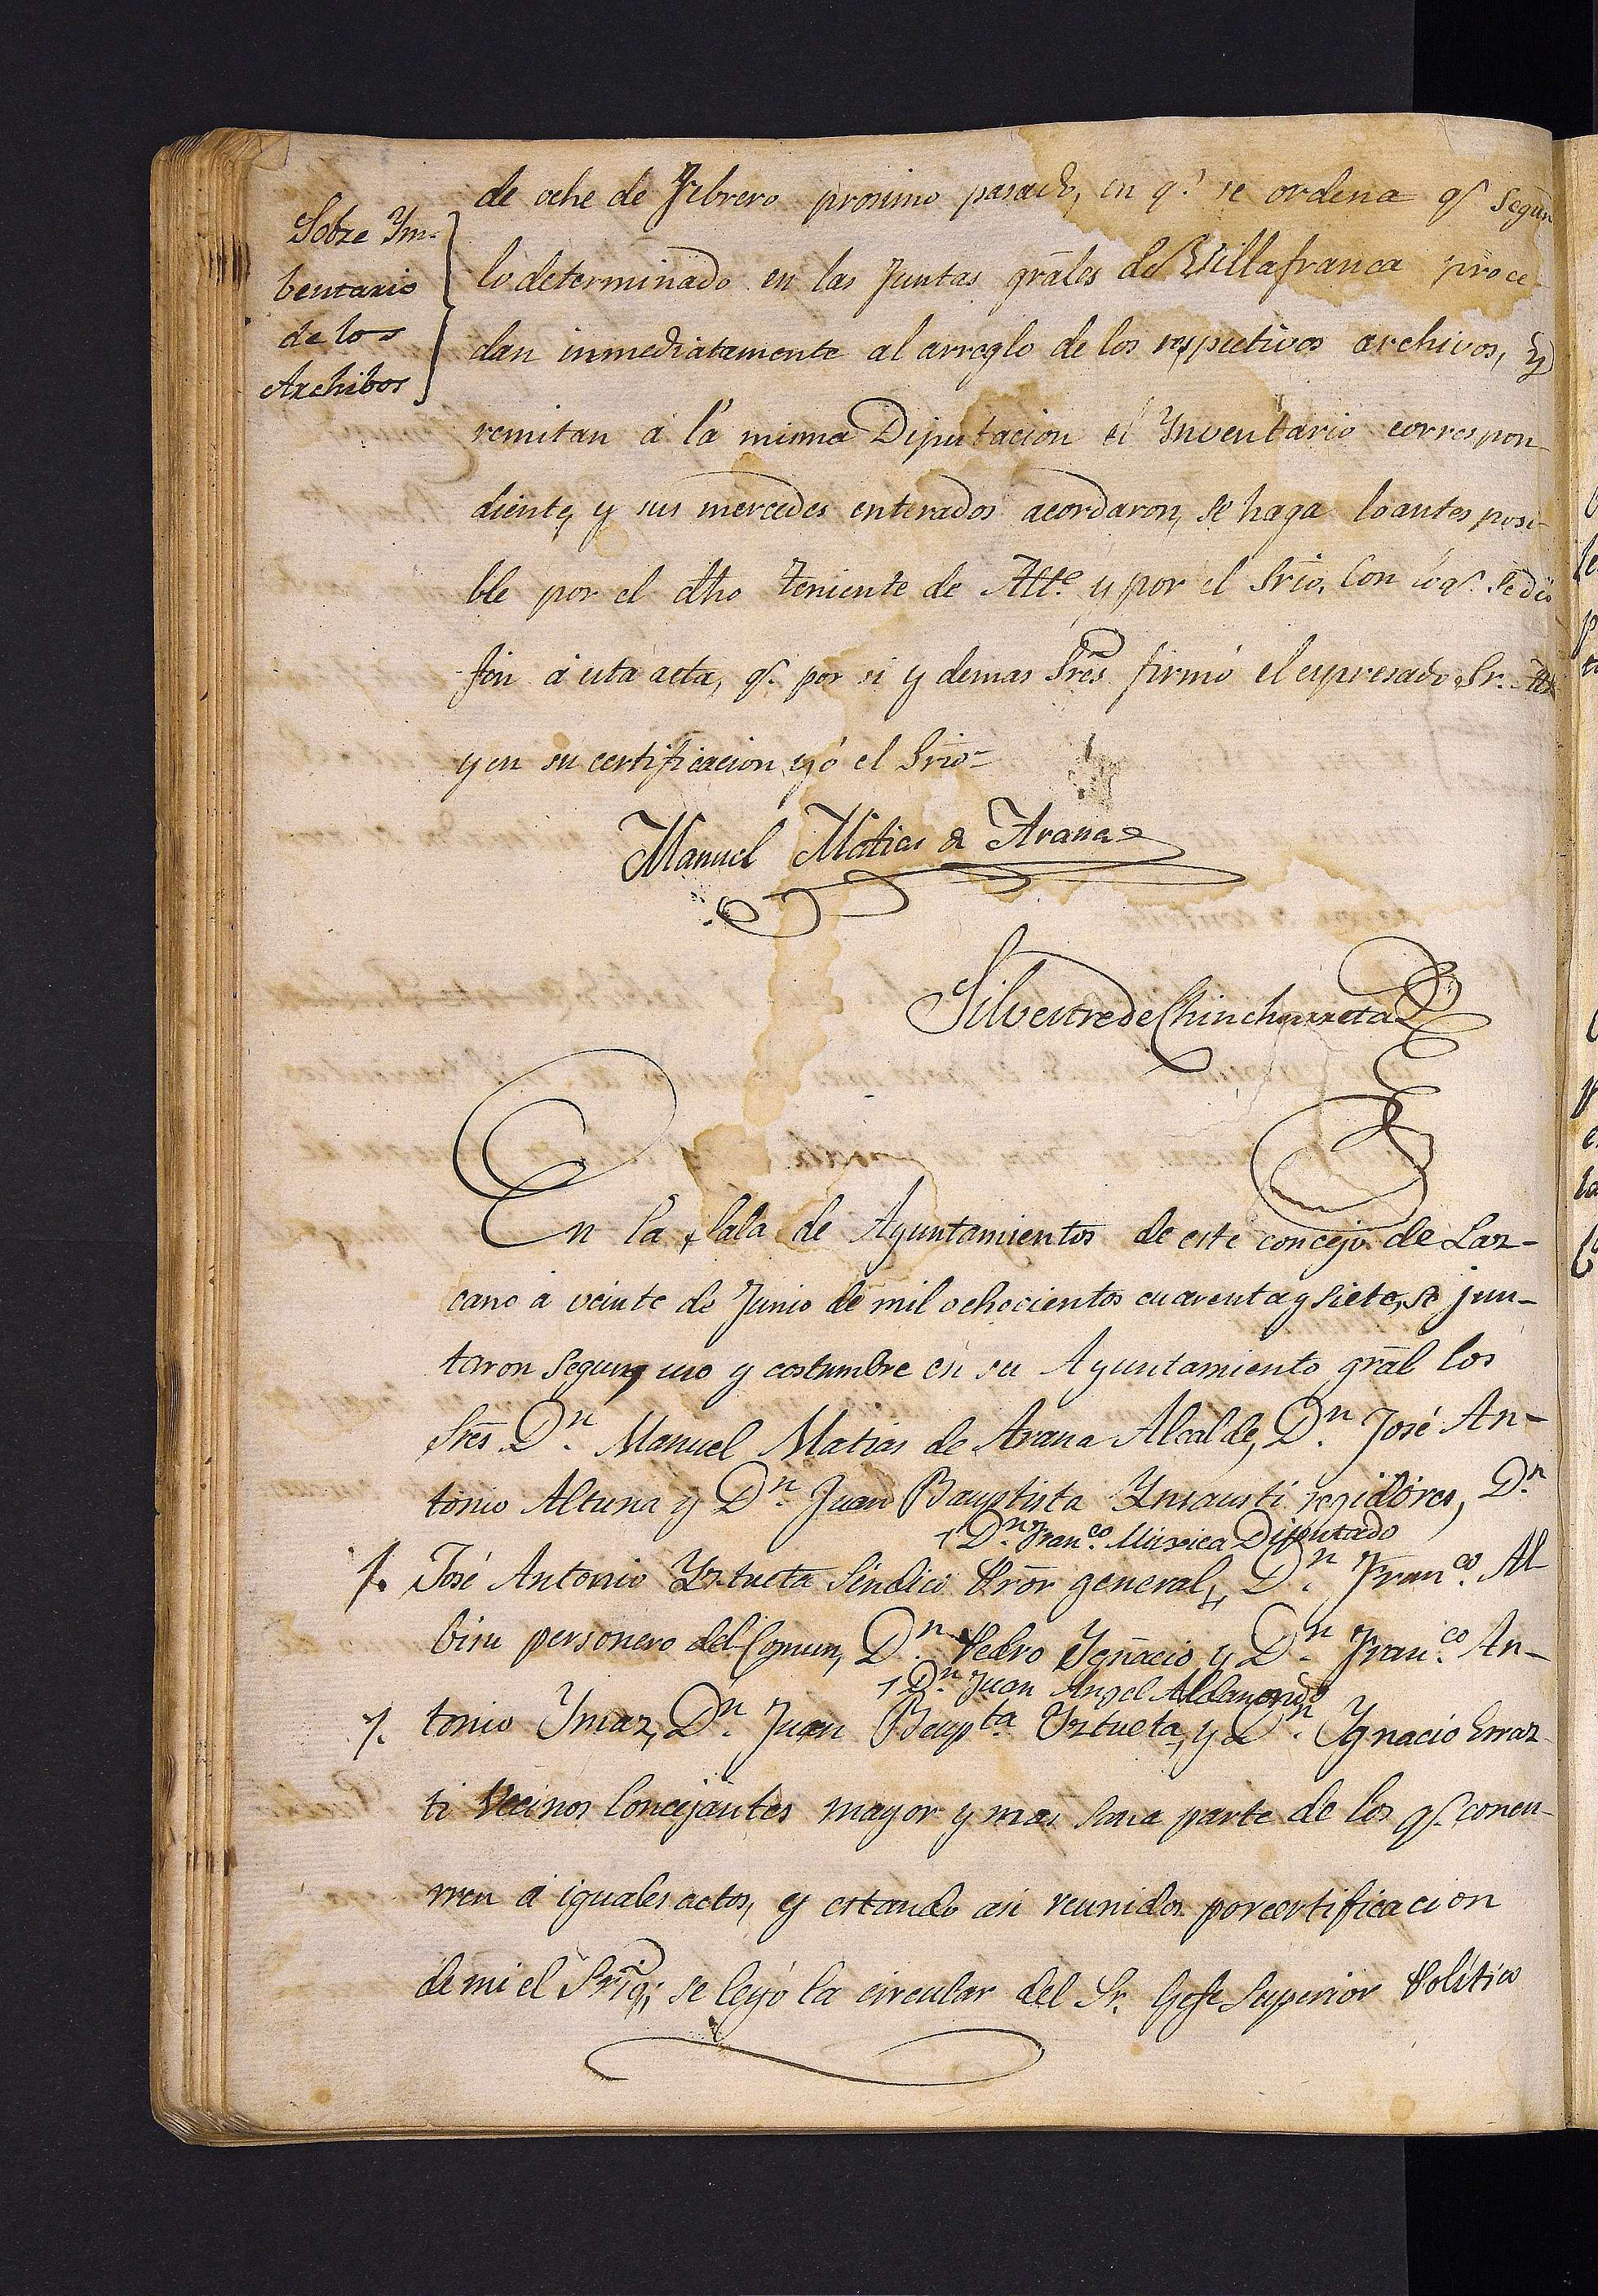 Sobre Ym-
bentario
de los
Archibos
de oche de Febrero prosimo pasado, en q.e se ordena q.e segun
lo determinado en las Juntas grāles de Villafranca proce-
dan inmediatamente al arreglo de los respectivos archivos, y
remitan á la misma Diputacion el Ynventario correspon-
diente, y sus mercedes enterados acordaron, se haga lo antes posi-
ble por el dho Teniente de Alte y por el Srio. Con lo q.e se dió
fin á esta acta, q.e por si y demas Sres firmó el espresado Sr. Alte
y en su certificacion yó el Srio-
Manuel Matias de Arana
Silvestre de Chinchurreta
En la Sala de Ayuntamientos de este concejo de Laz-
cano á veinte de Junio de mil ochocientos cuarenta y siete, se jun-
taron segun uso y costumbre en su Ayuntamiento grāl los
Sres Dn. Manuel Matias de Arana Alcalde, Dn. José An-
tonio Altuna y Dn. Juan Bauptista Ynsausti regidores, Dn
+ Dn. Franco. Muxica Diputado
/. José Antonio Yztueta Sindico Prōr general, Dn. Franco. Al-
bisu personero del Comun, Dn. Pedro Ygnacio y Dn. Franco. An-
+ Dn. Juan Angel Aldanondo
/. tonio Ymaz, Dn. Juan Baupta. Yztueta, y Dn. Ygnacio Erraz-
ti Vecinos Concejantes mayor y mas sana parte de los q.e concu-
rren á iguales actos, y estando asi reunidos por certificacion
de mi el Srio, se leyó la circular del Sr. Gefe Superior Politico